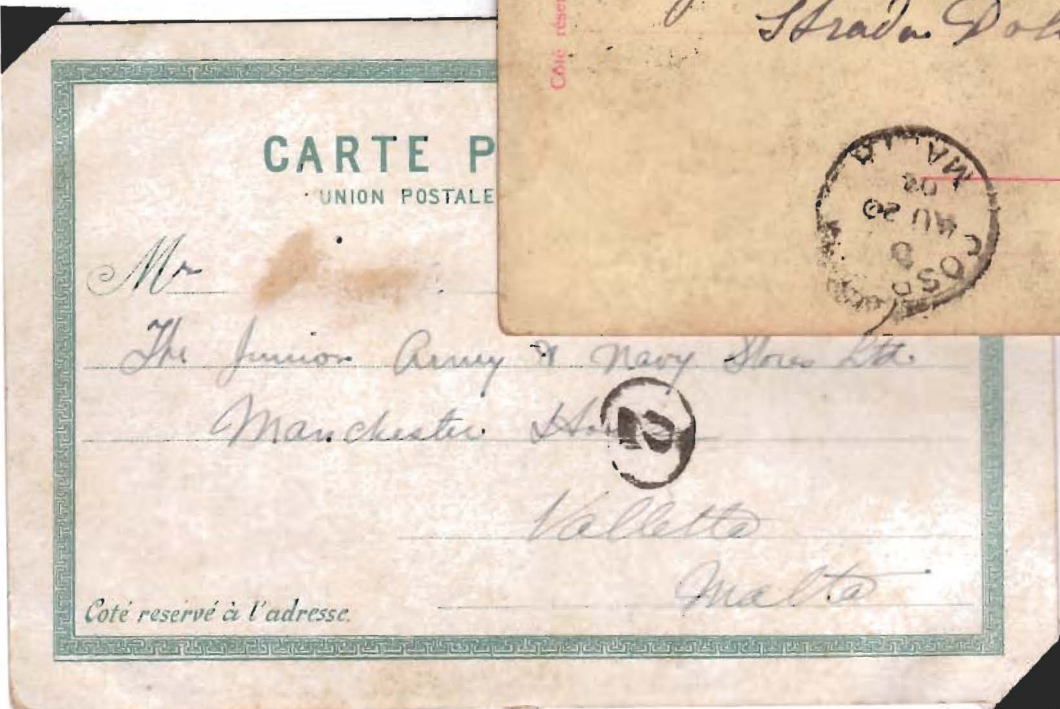 Côté réser
Strada
MALTA
04
AU 20
COSP
CARTE P
UNION POSTALE
Mr
The Junior Army & Navy Stores Ltd.
Manchester
2
Valletta
Malta
Coté reservé à l'adresse.